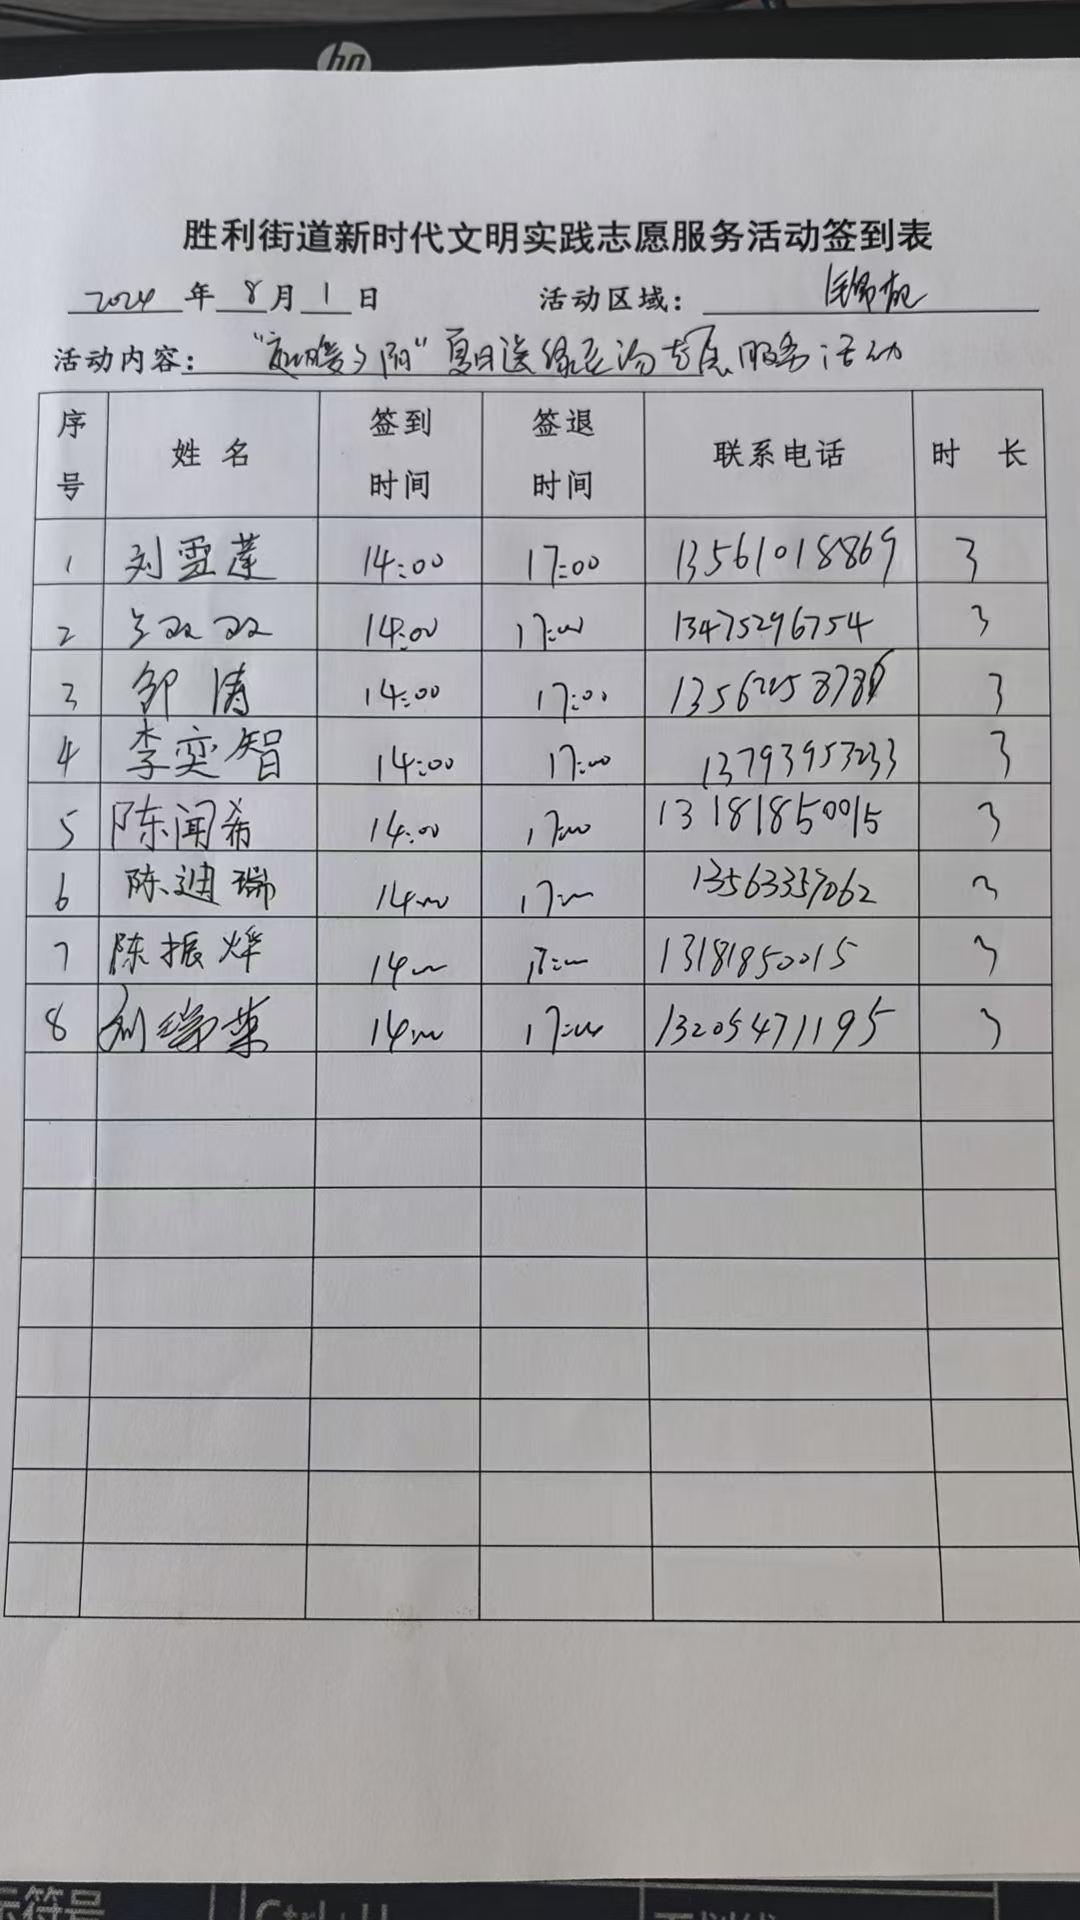 hp
胜利街道新时代文明实践志愿服务活动签到表
2024 年 8 月 1 日 活动区域: 锦苑
活动内容: "暖夕阳"夏日送绿豆汤志愿服务活动
序号 姓名 签到时间 签退时间 联系电话 时长
1 刘雪莲 14:00 17:00 13561018869 3
2 双双 14:00 17:00 13475296754 3
3 邹涛 14:00 17:00 3
4 李奕智 14:00 17:00 13793953233 3
5 陈闻希 14:00 17:00 13181850015 3
6 陈迪瑞 14:00 17:00 13563357062 3
7 陈振烨 14:00 17:00 13181850015 3
8 刘瑞莱 14:00 17:00 13205471195 3
示符号 Ctrl+U 下划线